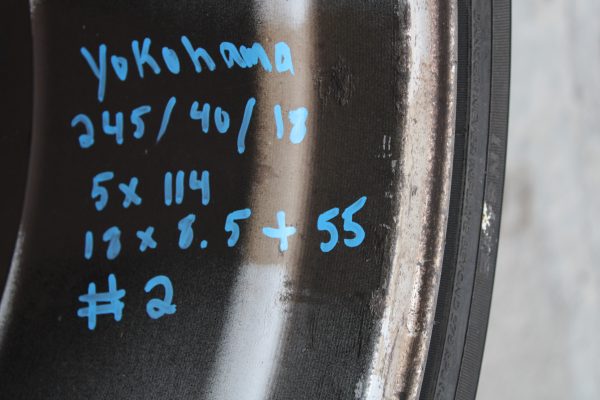 Yokohama
245/40/18
5x 114
18x 8.5 + 55
# 2